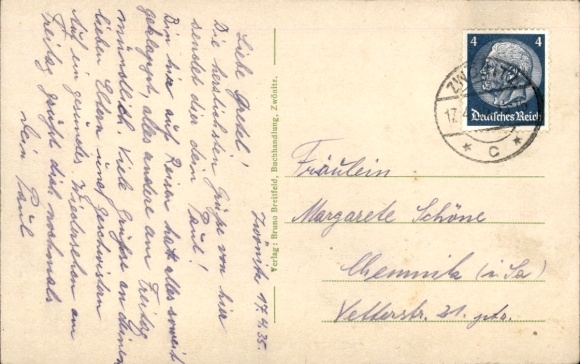 Zwönitz 17.4.35.
Liebe Gretel!
Die herzlichsten Grüße von hier
sendet dir dein Paul!
Bin hier auf Reisen hat alles soweit
geklappt, alles andere am Freitag
mündlich. Viele Grüße an deine
lieben Eltern und Geschwister
Auf ein gesundes Wiedersehen am
Freitag grüßt dich nochmals
dein Paul
Verlag: Bruno Breitfeld, Buchhandlung, Zwönitz.
4 4
Deutsches Reich
ZWÖNITZ
17.4
* c *
Fräulein
Margarete Schöne
Chemnitz (i. Sa)
Vetterstr. 21.